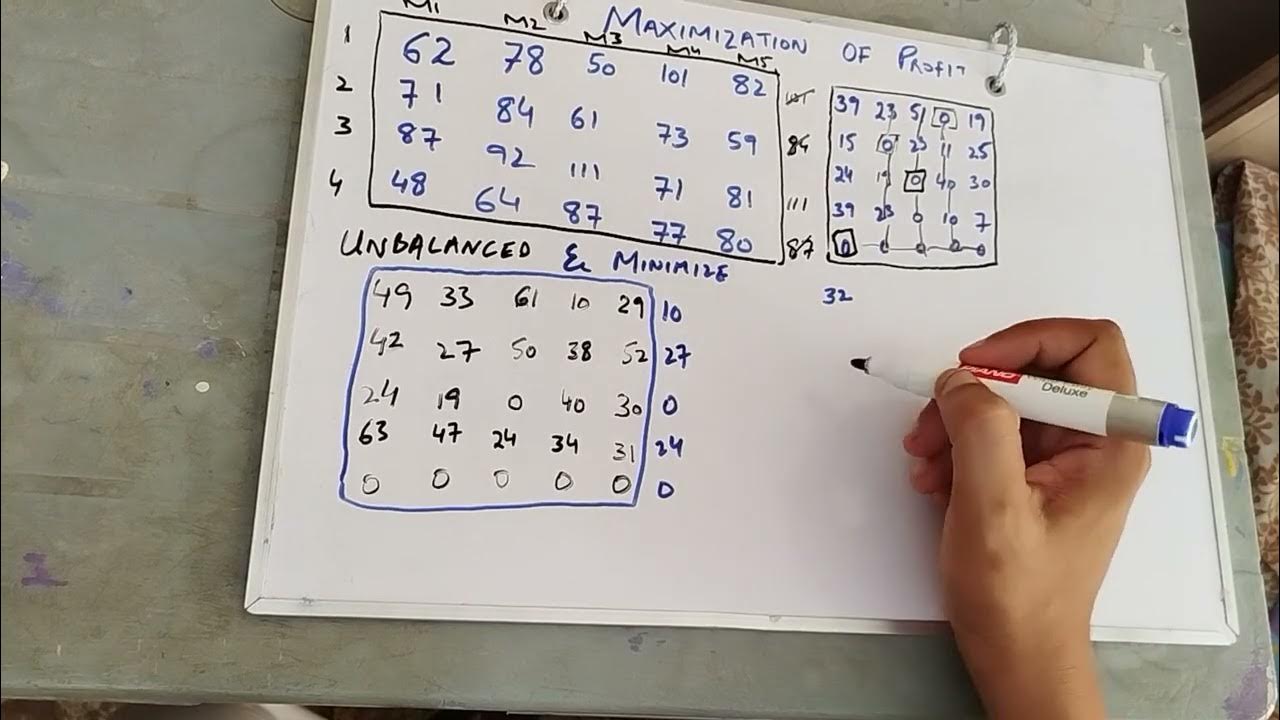 MAXIMIZATION OF PROFIT
M1 M2 M3 M4 M5
1 62 78 50 101 82
2 71 84 61 73 59 84
3 87 92 111 71 81 111
4 48 64 87 77 80 87
39 23 51 0 19
15 0 23 11 25
24 19 0 40 30
39 23 0 10 7
0 0 0 0 0
UNBALANCED & MINIMIZE
32
49 33 61 10 29 10
42 27 50 38 52 27
24 19 0 40 30 0
63 47 24 34 31 24
0 0 0 0 0 0
PIANO
Deluxe